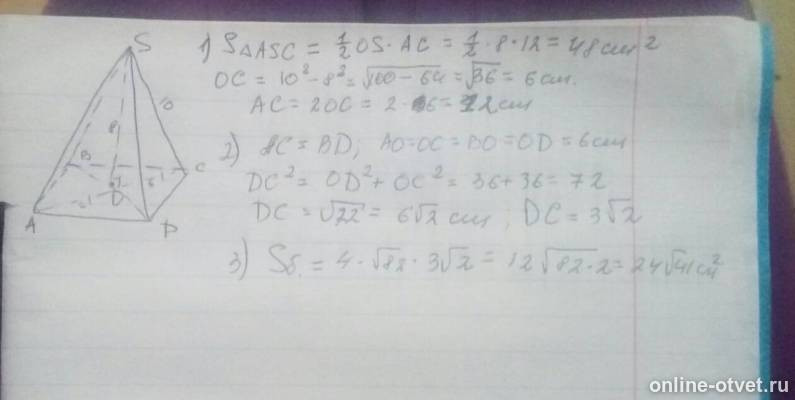 S
1) S△ASC = 1/2 OS · AC = 1/2 · 8 · 12 = 48 см²
OC = 10² - 8² = √100 - 64 = √36 = 6 см.
AC = 2OC = 2 · 6 = 12 см
10
8
B
C
2) AC = BD; AO = OC = BO = OD = 6 см
6
6
O
DC² = OD² + OC² = 36 + 36 = 72
A
D
DC = √72 = 6√2 см; DC = 3√2
3) Sб. = 4 · √82 · 3√2 = 12√82 · 2 = 24√41 см²
online-otvet.ru